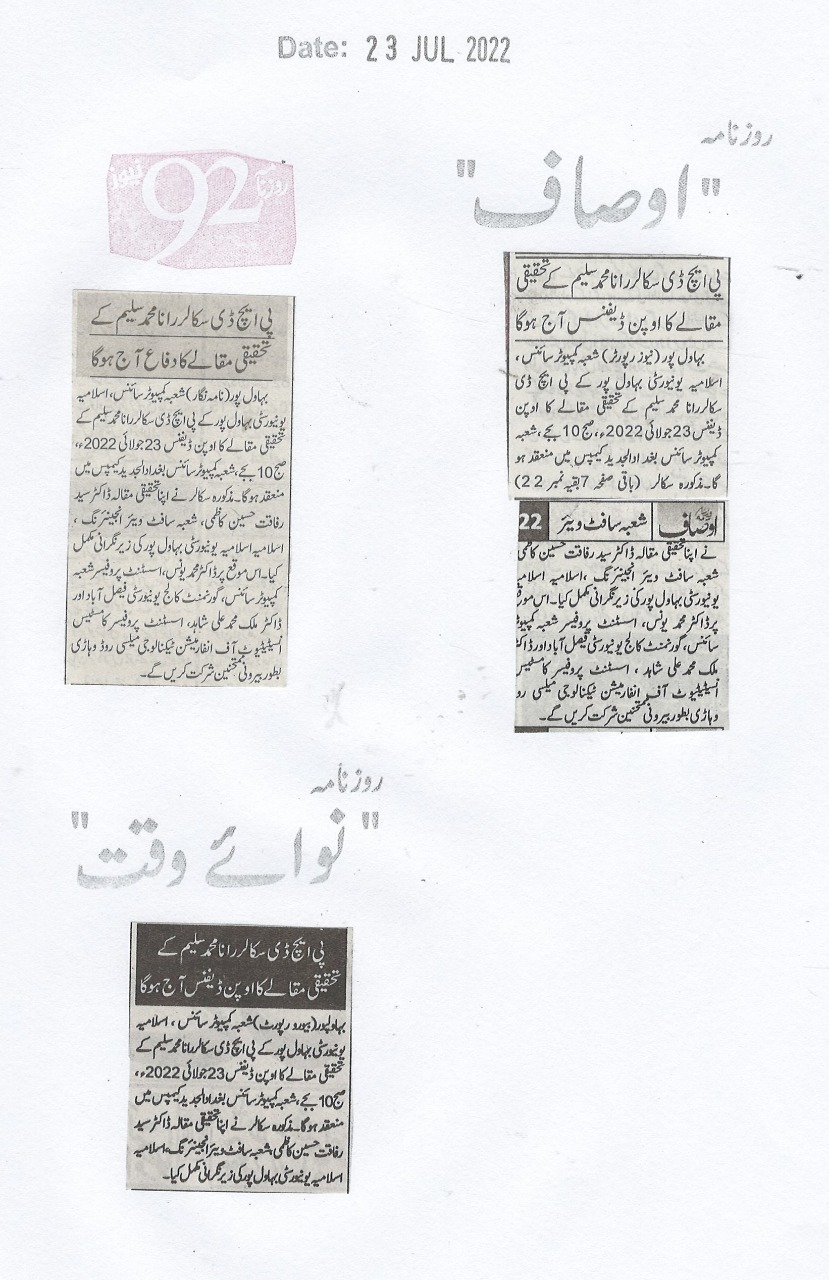 Date: 23 JUL 2022
روزنامہ
"اوصاف"
روزنامہ 92 نیوز
پی ایچ ڈی سکالر رانا محمد سلیم کے تحقیقی
مقالے کا اوپن ڈیفنس آج ہوگا
بہاول پور (نیوز رپورٹر) شعبہ کمپیوٹر سائنس،
اسلامیہ یونیورسٹی بہاول پور کے پی ایچ ڈی
سکالر رانا محمد سلیم کے تحقیقی مقالے کا اوپن
ڈیفنس 23 جولائی 2022ء، صبح 10 بجے، شعبہ
کمپیوٹر سائنس بغداد الجدید کیمپس میں منعقد ہو
گا۔ مذکورہ سکالر (باقی صفحہ 7 بقیہ نمبر 22)
اوصاف شعبہ سافٹ ویئر 22
نے اپنا تحقیقی مقالہ ڈاکٹر سید رفاقت حسین کاظمی
شعبہ سافٹ ویئر انجینئرنگ، اسلامیہ اسلامیہ
یونیورسٹی بہاول پور کی زیر نگرانی مکمل کیا۔ اس موقع
پر ڈاکٹر محمد یونس، اسسٹنٹ پروفیسر شعبہ کمپیوٹر
سائنس، گورنمنٹ کالج یونیورسٹی فیصل آباد اور ڈاکٹر
ملک محمد علی شاہد، اسسٹنٹ پروفیسر کامسٹیس
انسٹیٹیوٹ آف انفارمیشن ٹیکنالوجی میلسی رو
وہاڑی بطور بیرونی ممتحنین شرکت کریں گے۔
پی ایچ ڈی سکالر رانا محمد سلیم کے
تحقیقی مقالے کا دفاع آج ہوگا
بہاول پور (نامہ نگار) شعبہ کمپیوٹر سائنس، اسلامیہ
یونیورسٹی بہاول پور کے پی ایچ ڈی سکالر رانا محمد سلیم کے
تحقیقی مقالے کا اوپن ڈیفنس 23 جولائی 2022ء،
صبح 10 بجے، شعبہ کمپیوٹر سائنس بغداد الجدید کیمپس میں
منعقد ہوگا۔ مذکورہ سکالر نے اپنا تحقیقی مقالہ ڈاکٹر سید
رفاقت حسین کاظمی، شعبہ سافٹ ویئر انجینئرنگ،
اسلامیہ اسلامیہ یونیورسٹی بہاول پور کی زیر نگرانی مکمل
کیا۔ اس موقع پر ڈاکٹر محمد یونس، اسسٹنٹ پروفیسر شعبہ
کمپیوٹر سائنس، گورنمنٹ کالج یونیورسٹی فیصل آباد اور
ڈاکٹر ملک محمد علی شاہد، اسسٹنٹ پروفیسر کامسٹیس
انسٹیٹیوٹ آف انفارمیشن ٹیکنالوجی میلسی روڈ وہاڑی
بطور بیرونی ممتحنین شرکت کریں گے۔
روزنامہ
"نوائے وقت"
پی ایچ ڈی سکالر رانا محمد سلیم کے
تحقیقی مقالے کا اوپن ڈیفنس آج ہوگا
بہاولپور (بیورو رپورٹ) شعبہ کمپیوٹر سائنس، اسلامیہ
یونیورسٹی بہاول پور کے پی ایچ ڈی سکالر رانا محمد سلیم کے
تحقیقی مقالے کا اوپن ڈیفنس 23 جولائی 2022ء،
صبح 10 بجے، شعبہ کمپیوٹر سائنس بغداد الجدید کیمپس میں
منعقد ہوگا۔ مذکورہ سکالر نے اپنا تحقیقی مقالہ ڈاکٹر سید
رفاقت حسین کاظمی، شعبہ سافٹ ویئر انجینئرنگ، اسلامیہ
اسلامیہ یونیورسٹی بہاول پور کی زیر نگرانی مکمل کیا۔